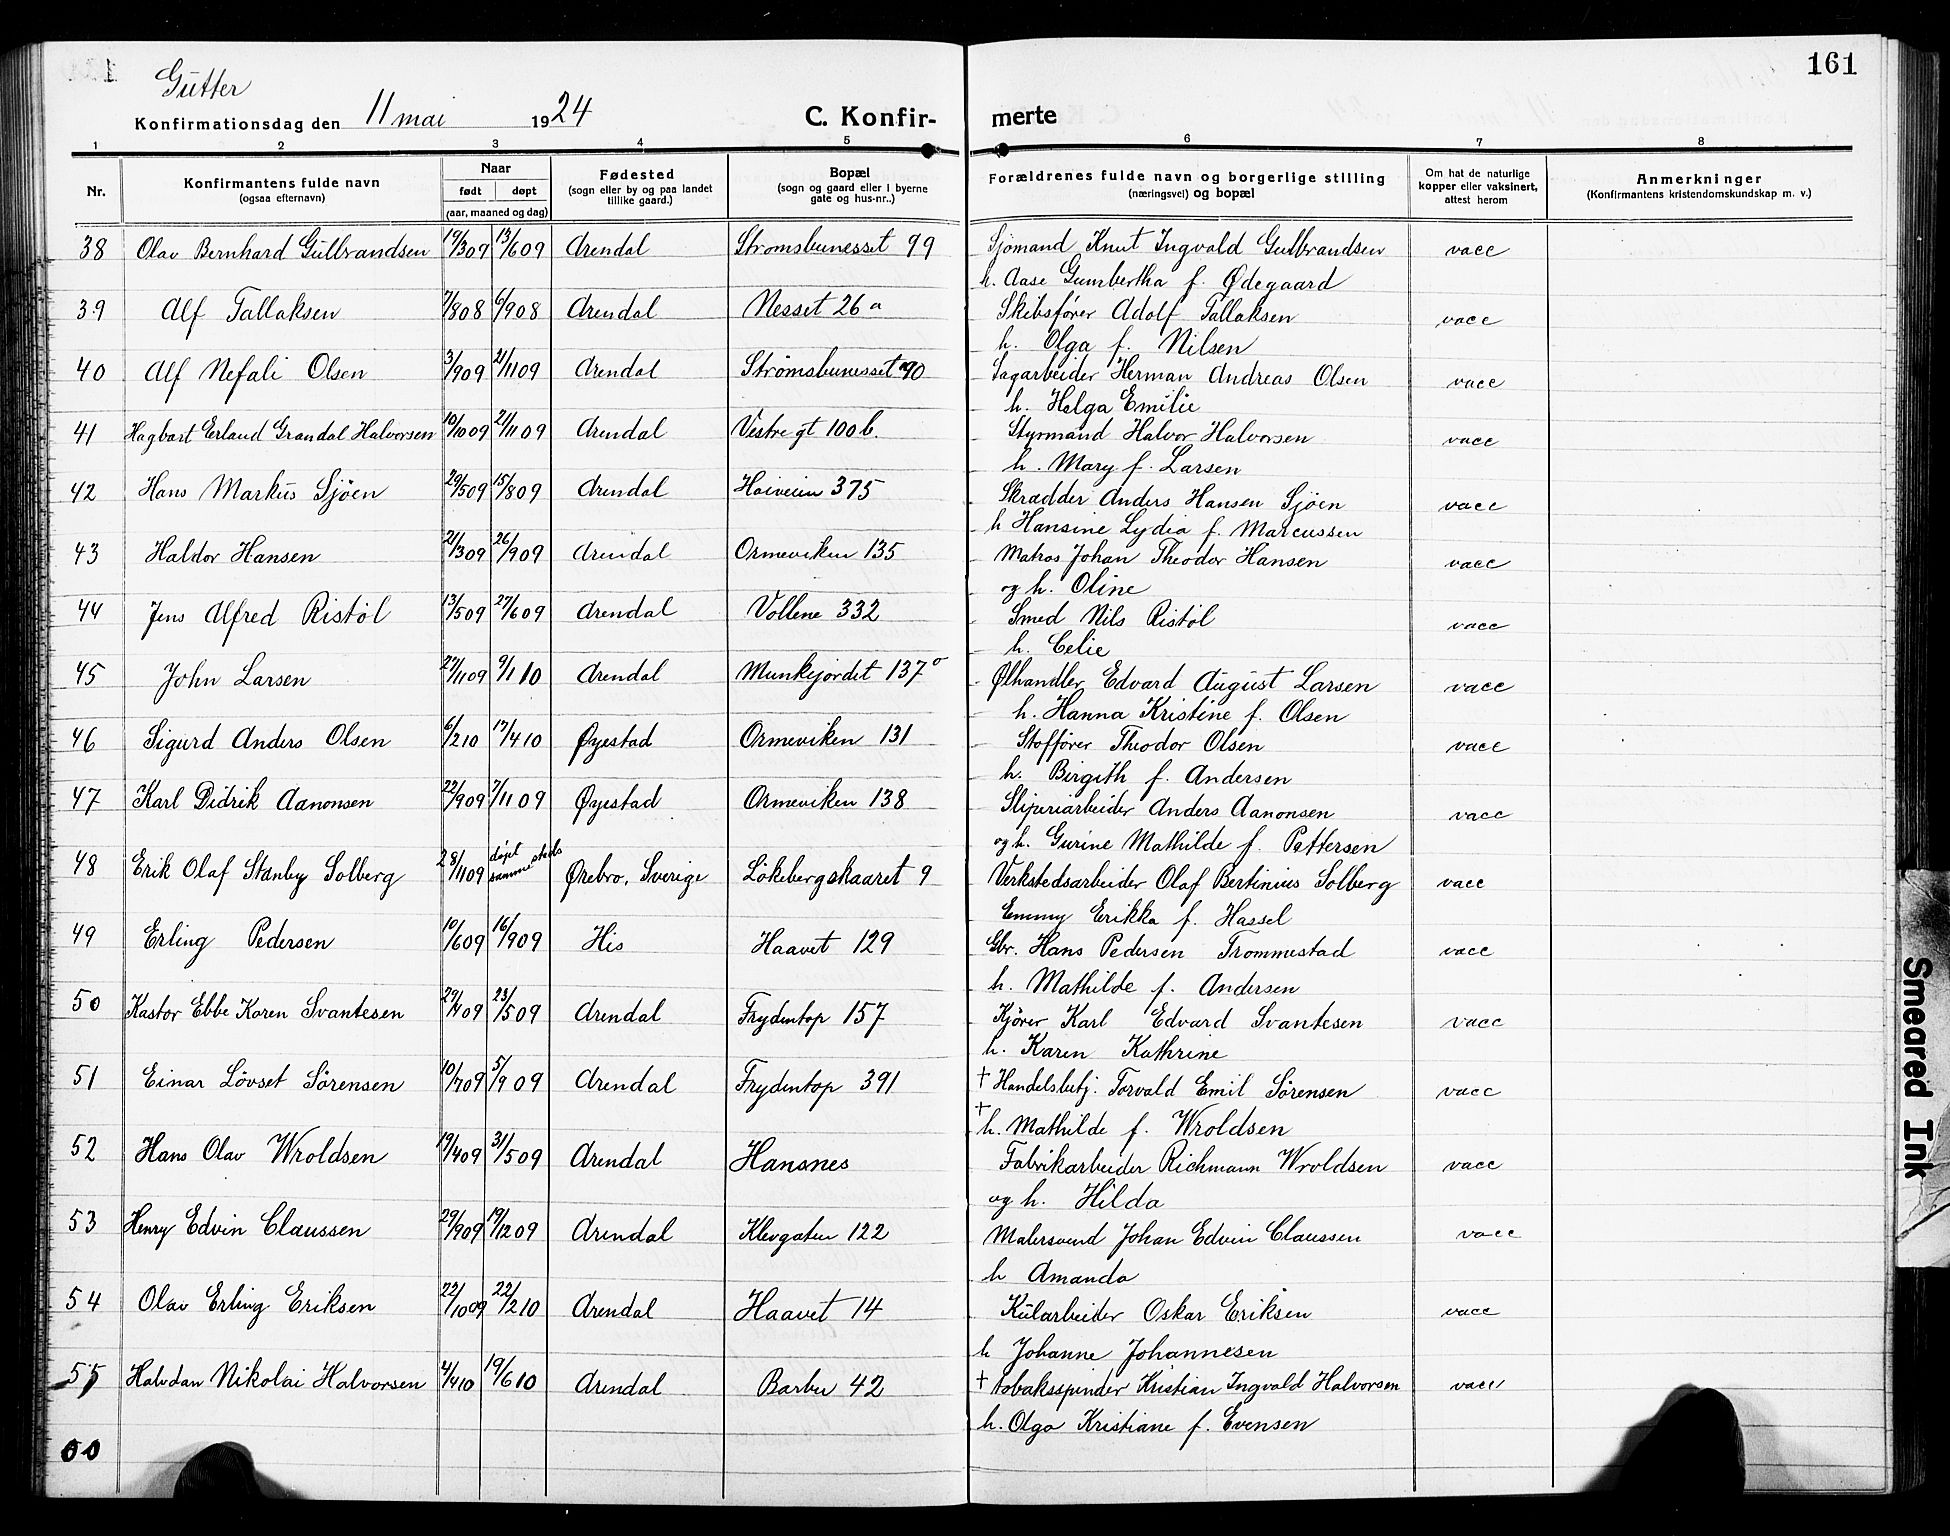 161
Gutter
Konfirmationsdag den 11 mai 1924 C. Konfir- merte
1 2 3 4 5 6 7 8
Nr. Konfirmantens fulde navn (ogsaa efternavn) Naar født døpt (aar, maaned og dag) Fødested (sogn eller by og paa landet tillike gaard.) Bopæl (sogn og gaard eller i byerne gate og hus-nr..) Forældrenes fulde navn og borgerlige stilling (næringsvei) og bopæl Om hat de naturlige kopper eller vaksinert, attest herom Anmerkninger (Konfirmantens kristendomskundskap m. v.)
38 Olav Bernhard Gulbrandsen 19/3 09 13/6 09 Arendal Strømsbunesset 99 Sjømand Knut Ingvald Gulbrandsen vacc
h. Aase Gumbertha f. Ødegaard
39 Alf Tallaksen 7/8 08 6/9 08 Arendal Nesset 26 a Skibsfører Adolf Tallaksen vacc
h. Olga f. Nilsen
40 Alf Nefali Olsen 3/9 09 21/11 09 Arendal Strømsbunesset 90 Sagarbeider Herman Andreas Olsen vacc
h. Helga Emilie
41 Hagbart Erland Grandal Halvorsen 10/10 09 21/11 09 Arendal Vestre gt 100 b. Styrmand Halvor Halvorsen vacc
h. Mary f. Larsen
42 Hans Markus Sjøen 29/5 09 15/8 09 Arendal Hoiveien 375 Skrædder Anders Hansen Sjøen vacc
h Hansine Lydia f. Marcussen
43 Haldor Hansen 21/3 09 26/9 09 Arendal Ormeviken 135 Matros Johan Theodor Hansen vacc
og h. Oline
44 Jens Alfred Ristøl 13/5 09 27/6 09 Arendal Vollene 332 Smed Nils Ristøl vacc
h. Celie
45 John Larsen 27/11 09 9/1 10 Arendal Munkejordet 137 a Ølhandler Edvard August Larsen vacc
h. Hanna Kristine f. Olsen
46 Sigurd Anders Olsen 6/2 10 17/4 10 Øyestad Ormeviken 131 Stoffører Theodor Olsen vacc
h. Birgith f. Andersen
47 Karl Didrik Aanonsen 22/9 09 7/11 09 Øyestad Ormeviken 138 Sliperiarbeider Anders Aanonsen vacc
og h. Gurine Mathilde f. Pettersen
48 Erik Olaf Stanley Solberg 28/11 09 døpt samme steds Ørebro, Sverige Løkebergskaaret 9 Verkstedsarbeider Olaf Bertinius Solberg vacc
Emmy Erikka f. Hassel
49 Erling Pedersen 10/6 09 16/9 09 His Haavet 129 Gbr. Hans Pedersen Trommestad vacc
h. Mathilde f. Andersen
50 Kastor Ebbe Koren Svantesen 29/4 09 23/5 09 Arendal Frydentop 157 Kjører Karl Edvard Svantesen vacc
h. Karen Kathrine
51 Einar Løvset Sørensen 10/7 09 5/9 09 Arendal Frydentop 391 † Handelsbetj. Torvald Emil Sørensen vacc
† h. Mathilde f. Wroldsen
52 Hans Olav Wroldsen 19/4 09 31/5 09 Arendal Hansnes Fabrikarbeider Richmann Wroldsen vacc
og h. Hilda
53 Henry Edvin Claussen 29/9 09 19/12 09 Arendal Klevgaten 122 Malersvend Johan Edvin Claussen vacc
h Amanda
54 Olav Erling Eriksen 22/10 09 22/2 10 Arendal Haavet 14 Kularbeider Oskar Eriksen vacc
h Johanne Johannesen
55 Halvdan Nikolai Halvorsen 4/4 10 19/6 10 Arendal Barbu 42 † tobaksspinder Kristian Ingvald Halvorsen vacc
h. Olga Kristiane f. Evensen
Smeared Ink